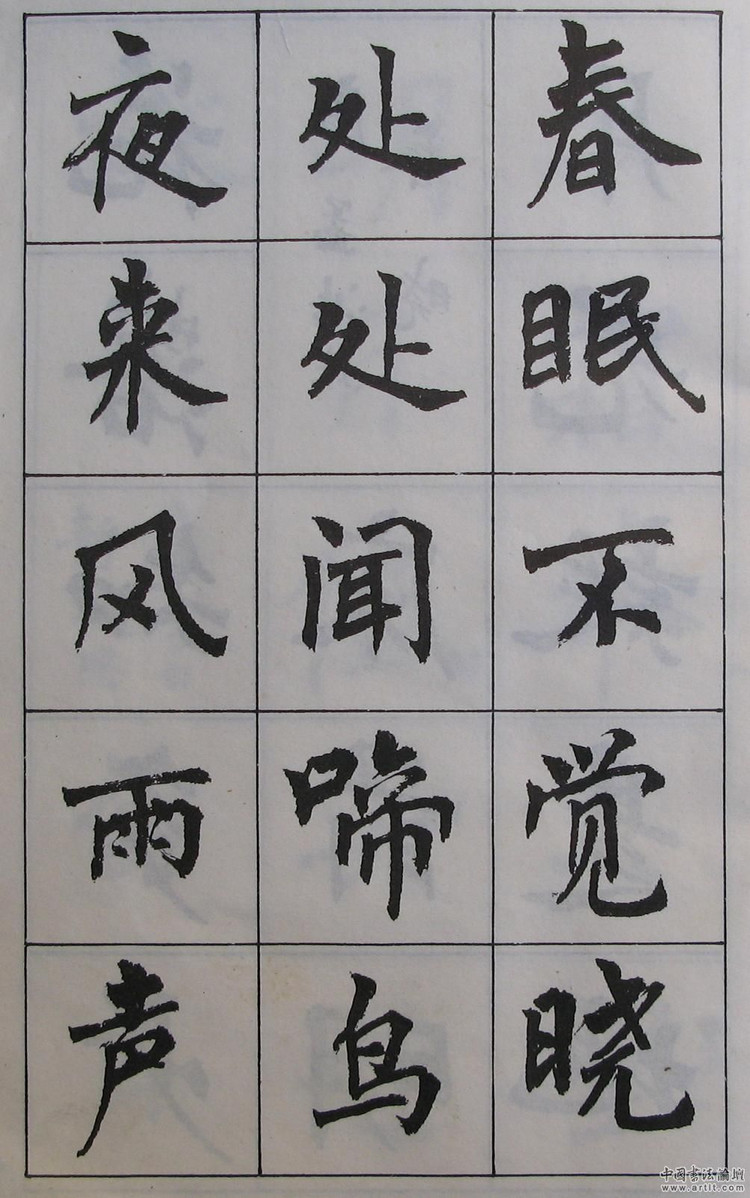 春眠不觉晓
处处闻啼鸟
夜来风雨声
中国书法论坛
www.artlt.com